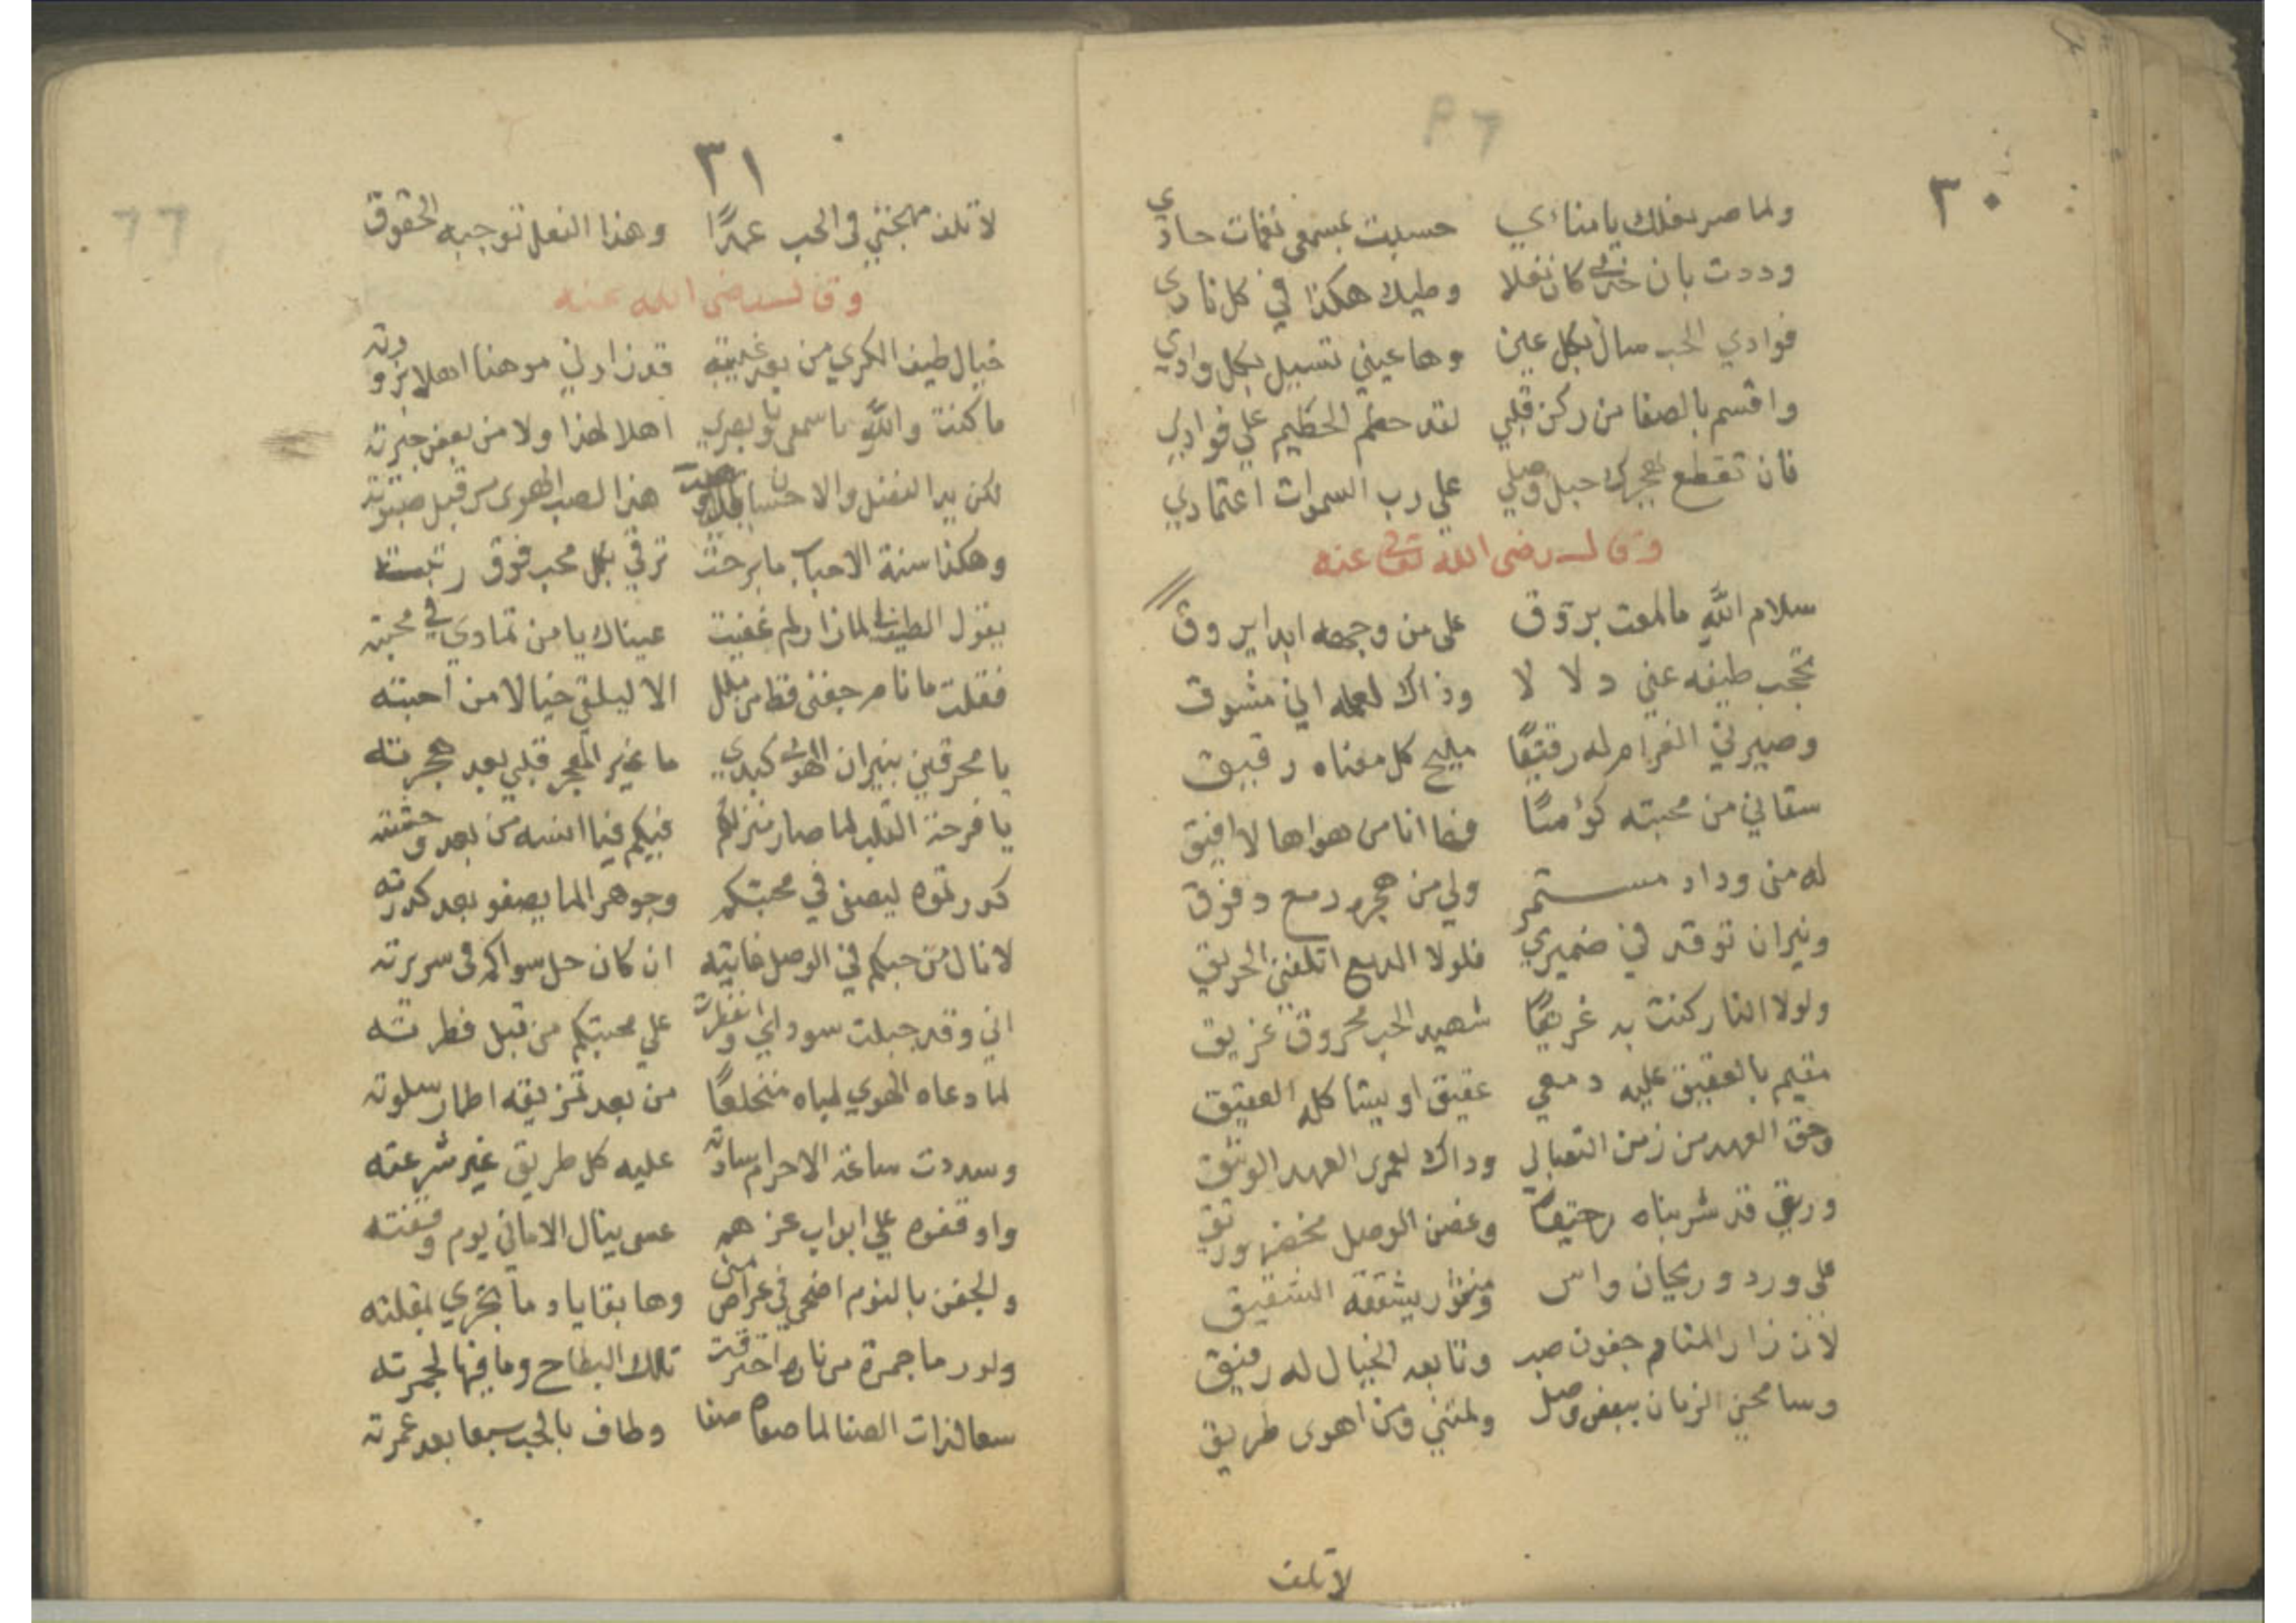 ٣٠
ولما صر نعلك يا منائي حسبت بمسمعي نغمات حادي
وددت بان خدي كان نعلا وطيك هكذا في كل نادي
فوادي الحب سال بكل عين وها عيني تسيل بكل وادي
واقسم بالصفا من ركن قلبي لقد حطم الحطيم علي فوادي
فان تقطع بهجرك حبل وصلي علي رب السموات اعتمادي
وقال رضى الله تعالى عنه
سلام الله ما لمعت بروق على من وجهه ابدا يروق
تحجب طيفه عني دلالا وذاك لعمله اني مشوق
وصيرني الغرام له رقيقًا مليح كل معناه رقيق
سقاني من محبته كؤسًا فها انا من هواها لا افيق
له مني وداد مستمر ولي من هجره دمع دفوق
ونيران توقد في ضميري فلولا الدمع اتلفني الحريق
ولولا النار كنت به غريقًا شهيد الحب محروق غريق
مقيم بالعقيق عليه دمعي عقيق او يشاكله العقيق
وحق العهد من زمن التصابي وداك لعمرى العهد الوثيق
وريقي قد شربناه رحيقًا وغصن الوصل مخضر وريق
على ورد وريحان واس ومنثور يشققه الشقيق
لان زار المنام جفون صب وتابعه الخيال له رفيق
وسامحني الزمان ببعض وصل ولمتني ومن اهوى طريق
لا تلف
٣١
لا تلف مهجتي في الحب عمدًا وهذا الفعل توجبه الحقوق
وقال رضى الله عنه
خيال طيف الكري من بعد غيبته قد زارني موهنا اهلا بزورته
ما كنت والله يا سمعي ويا بصري اهلا لهذا ولا من بعض جيرته
لكن يدا الفضل والاحسان هذا لصب الهوى من قبل صبوته
وهكذا سنة الاحباب ما برحت ترقي بكل محب فوق رتبته
يقول الطيف لما زار لم غفيت عيناك يا من تمادي في محبته
فقلت ما نام جفني قط من ملل الا ليلقي خيالا من احبته
يا محرقين بنيران الهوى كبدي ما غير الهجر قلبي بعد هجرته
يا فرحة القلب لما صار منزلكم فيكم فيا انسه من بعد وحشته
كدرتموه ليصفى في محبتكم وجوهر الما يصفو بعد كدرته
لا نال من حبكم في الوصل غايته ان كان حل سواكم في سريرته
اني وقد جبلت سوداي وانفطرت علي محبتكم من قبل فطرته
لما دعاه الهوي لباه منخلعًا من بعد تمزيقه اطمار سلوته
وسددت ساعة الاحرام سادته عليه كل طريق غير شرعته
واوقفوه علي ابواب عزهم عسى ينال الاماني يوم وقفته
والجفن بالنوم اضحي في عراص منى وها بقايا دما تجري بمقلته
ولو رما جمرة من ناره احترقت تلك البطاح وما فيها لجمرته
سعا لذات الصفا لما صفاه صفا وطاف بالحب سبعا بعد عمرته